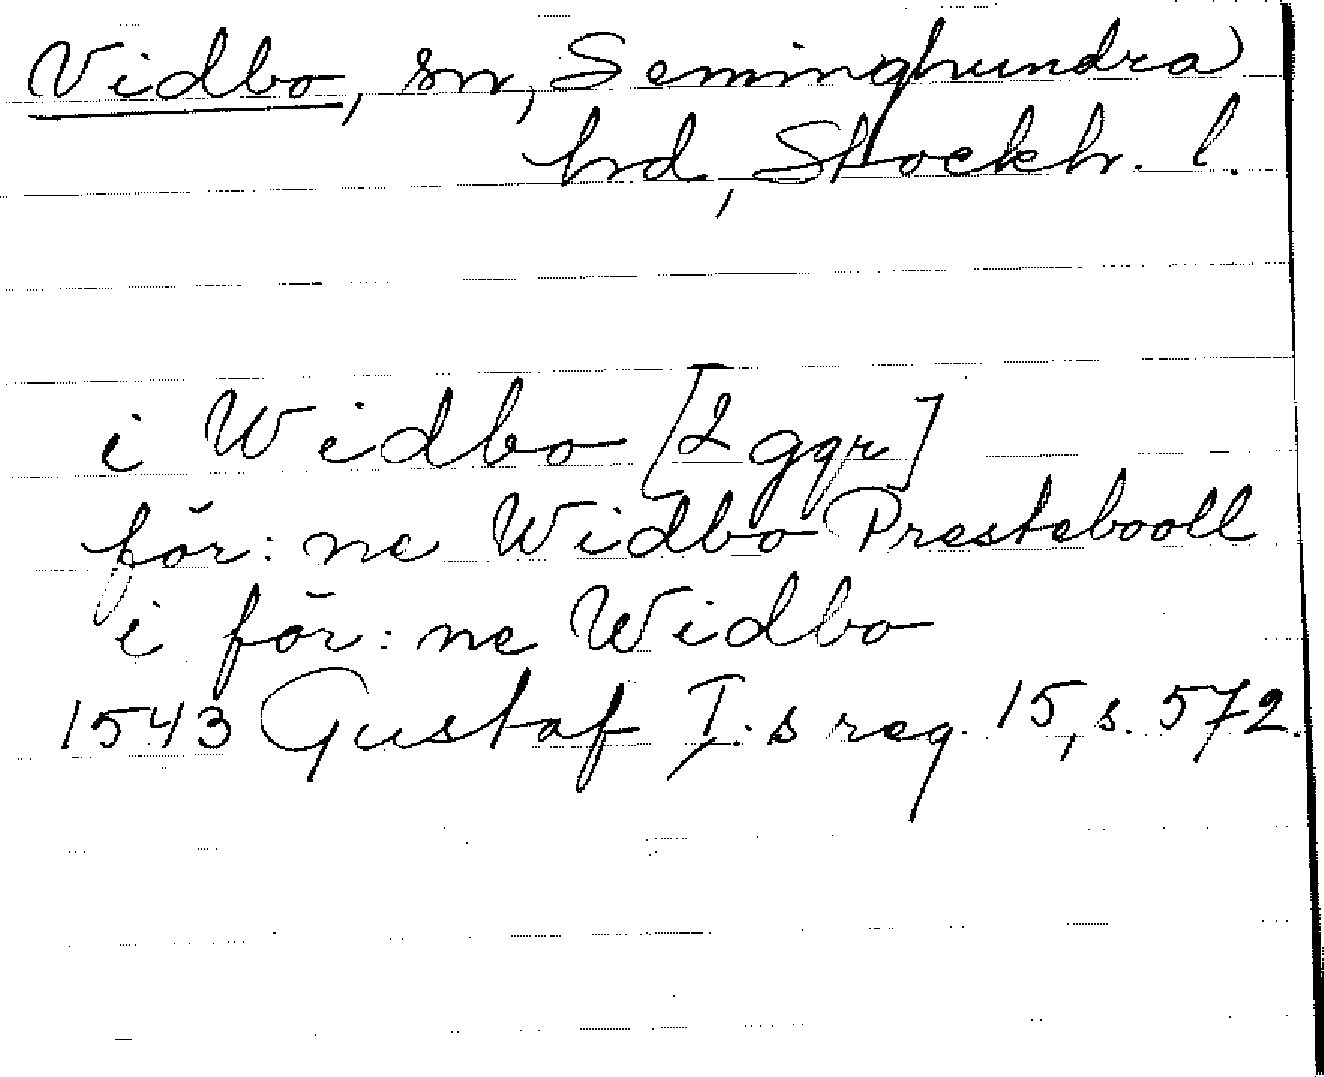 Vidbo, sn, Seminghundra
hd, Stockh. l.
i Widbo [2 ggr]
för: ne Widbo Prestebooll
i för: ne Widbo
1543 Gustaf I:s reg. 15, s. 572.